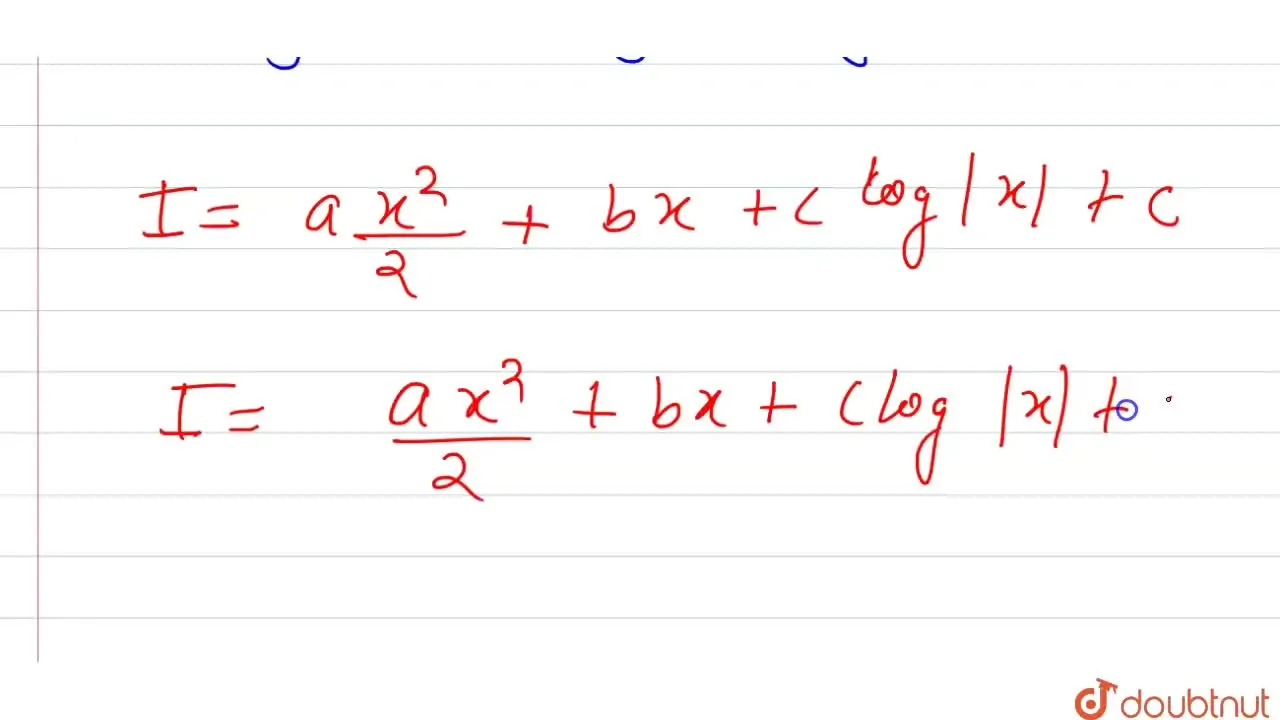 I = a x²/2 + bx + c log |x| + c
I = ax²/2 + bx + c log |x| +
doubtnut